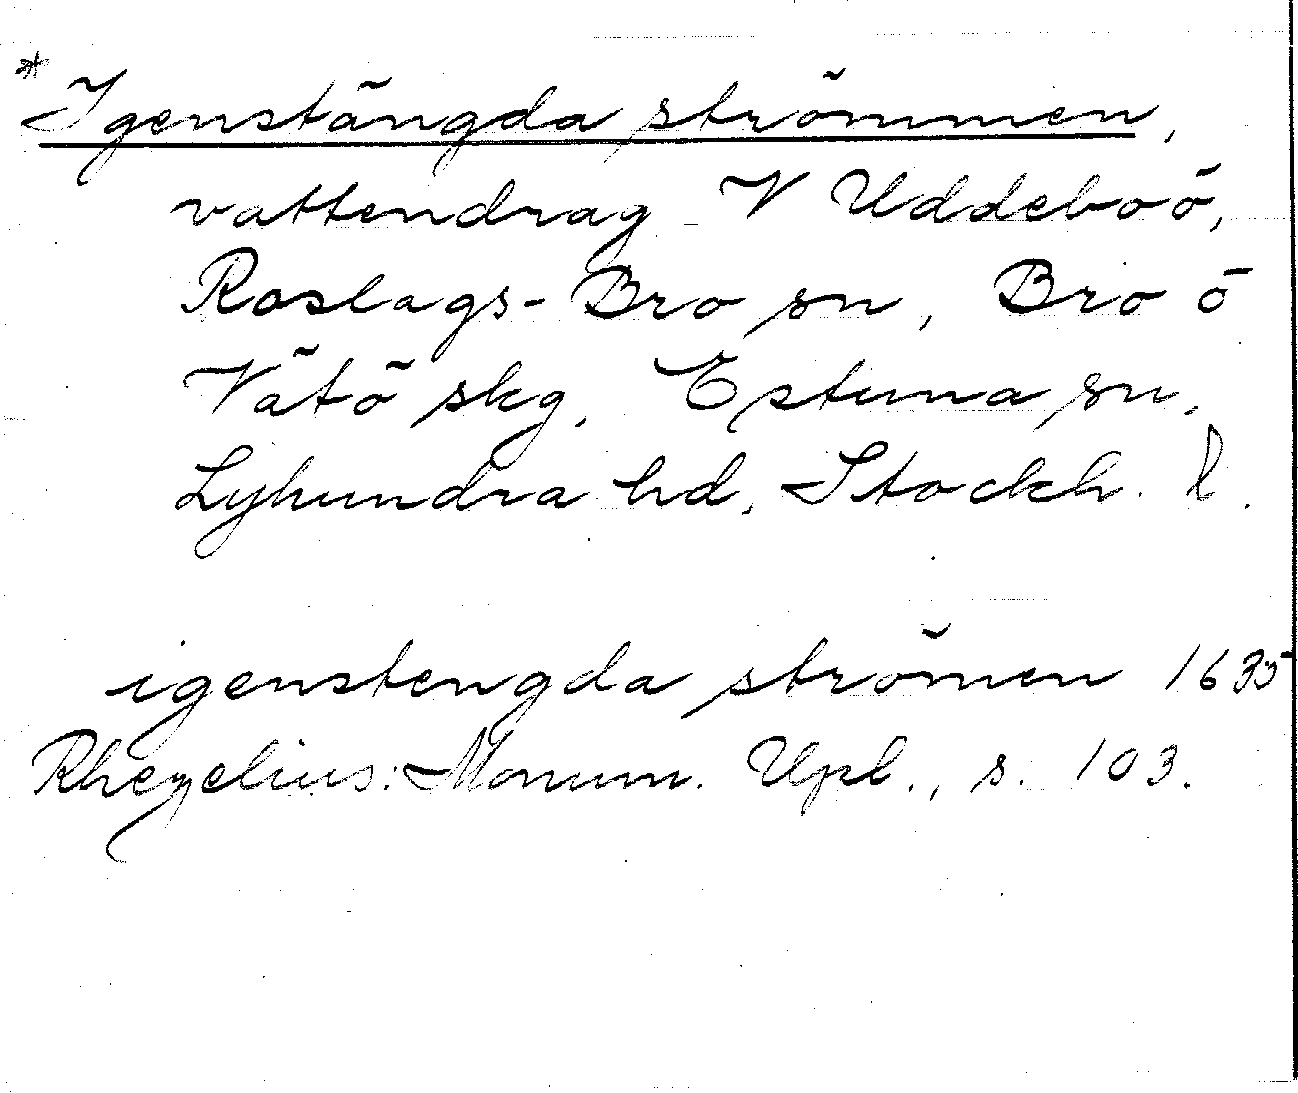 * Igenstängda strömmen,
vattendrag V Uddeboö,
Roslags-Bro sn, Bro ö
Vätö skg, Estuna sn,
Lyhundra hd, Stockh. l.
igenstengda strömen 1635
Rhezelius: Monum. Upl., s. 103.